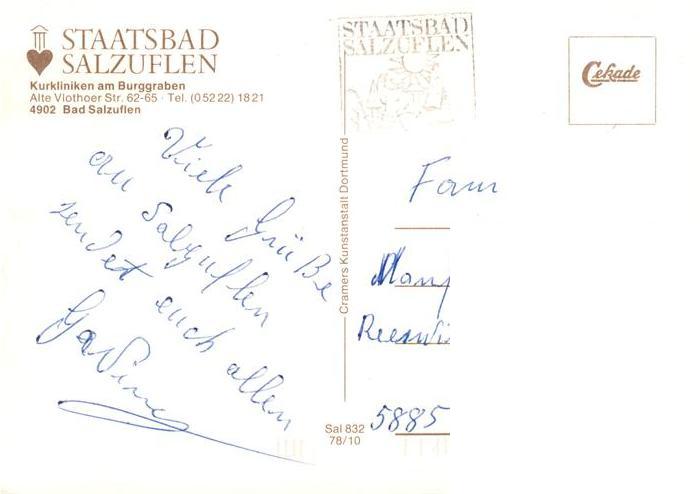 STAATSBAD
SALZUFLEN
Kurkliniken am Burggraben
Alte Vlothoer Str. 62-65 · Tel. (0 52 22) 18 21
4902 Bad Salzuflen
STAATSBAD
SALZUFLEN
Cekade
Viele Grüße
au Salzuflen
sendet euch allen
Cramers Kunstanstalt Dortmund
Fam
5885
Sal 832
78/10